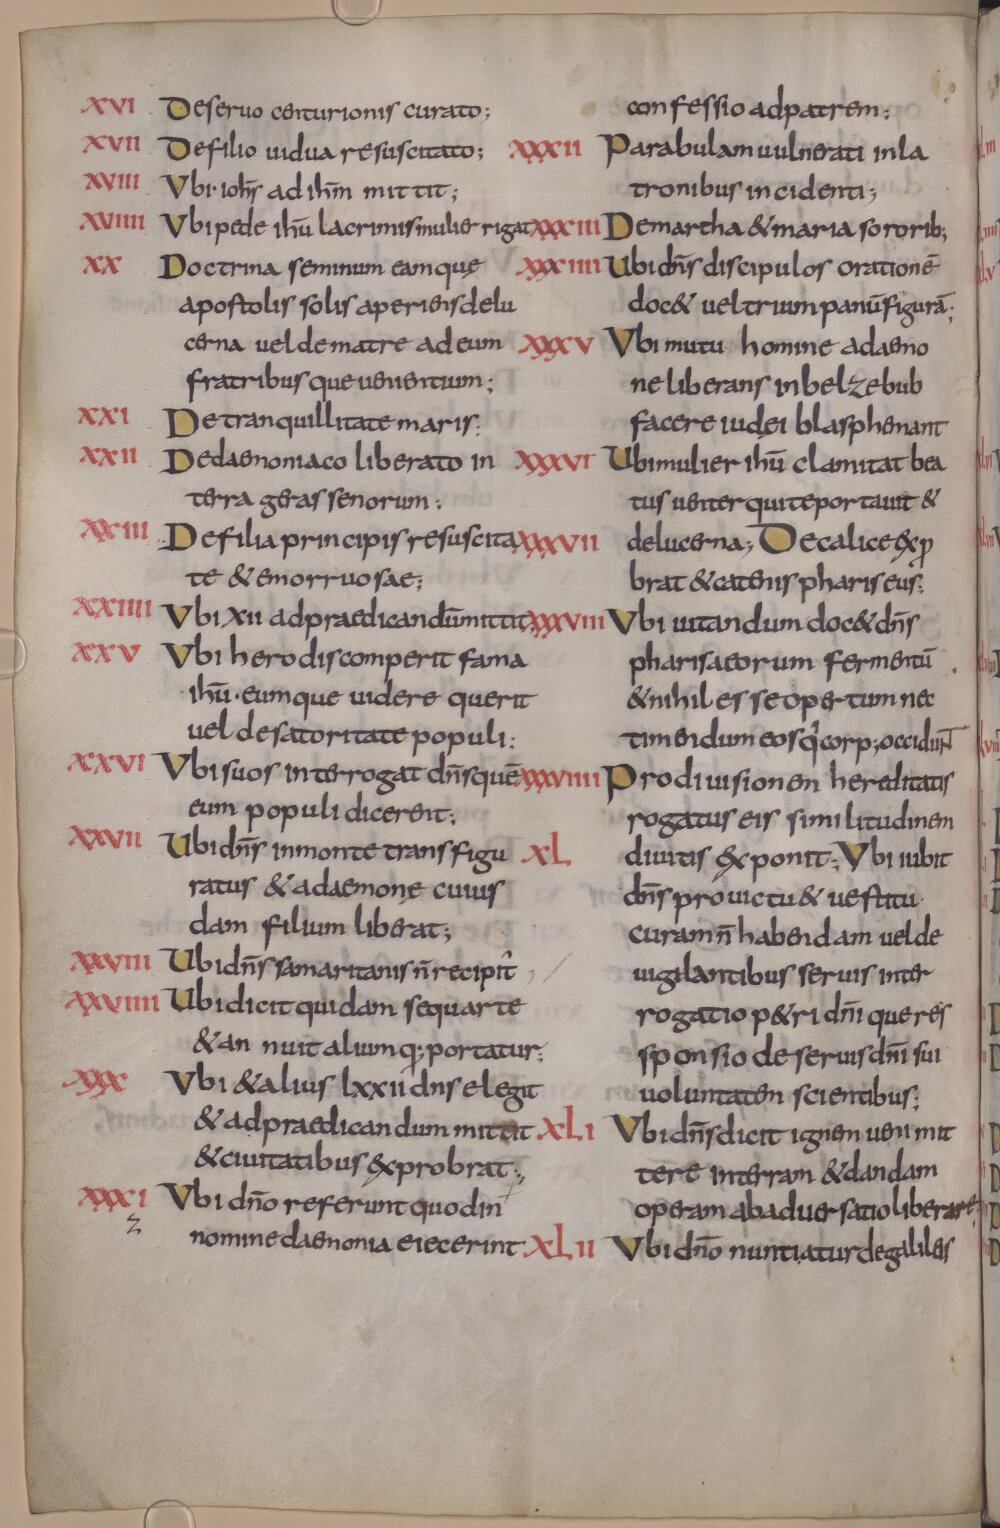 XVI Deseruo centurionis curato;
XVII Defilio uidua resuscitato;
XVIII Vbi·ioħs ad ihm̄ mittit;
XVIIII Vbi pede ihū lacrimis mulier rigat
XX Doctrina seminum eamque
apostolis solis aperiens delu
cerna uel de matre ad eum
fratribusque uenientium;
XXI De tranquillitate maris:
XXII De daemoniaco liberato in
terra gerassenorum;
XXIII De filia principis resuscita
te & emorruosae;
XXIIII Vbi xii ad praedicandūmittit;
XXV Vbi herodis comperit fama
ihū·eumque uidere querit
uel de satoritate populi:
XXVI Vbi suos interrogat dn̄s quē
eum populi dicerent;
XXVII Ubi dn̄s inmonte transfigu
ratus & adaemone cuius
dam filium liberat;
XXVIII Ubi dn̄s samaritanis n̄ recipit̄
XXVIIII Ubi dicit quidam sequar te
& an nuit aliumq; portatur;
XXX Vbi & alius lxxii dns elegit
& ad praedicandum mittit
& ciuitatibus exprobrat;
XXXI Vbi dn̄o referunt quod in
Z
nomine daemonia eiecerint
confessio ad patrem;
XXXII Parabulam uulnerati in la
tronibus incidenti;
XXXIII De martha & maria sororib;
XXXIIII Ubi dn̄s discipulos orationē
doc& uel trium panū figurā;
XXXV Vbi mutu homine a daemo
ne liberans in belzebub
facere iudei blasphemant
XXXVI Ubi mulier ihū clamitat bea
tus uenter qui te portauit &
XXXVII de lucerna; De calice exp̄
brat & catenis phariseus;
XXXVIII Vbi uitandum doc& dn̄s
pharisaeorum fermentū
& nihil esse opertum nec
timendum eos q̇ corp; occidunt
XXXVIIII Pro diuisionem hereditatis
rogatus eis similitudinem
XL diuitis exponit; Vbi iubit
dn̄s pro uictu & uestitu
curam n̄ habendam uel de
uigilantibus seruis inter
rogatio p&ri dn̄i que res
sponsio de seruis dn̄i sui
uoluntatem scientibus;
XLI Vbi dn̄s dicit ignem ueni mit
tere interram & dandam
operam ab aduersatio liberare;
XLII Vbi dn̄o nuntiatur de galileis